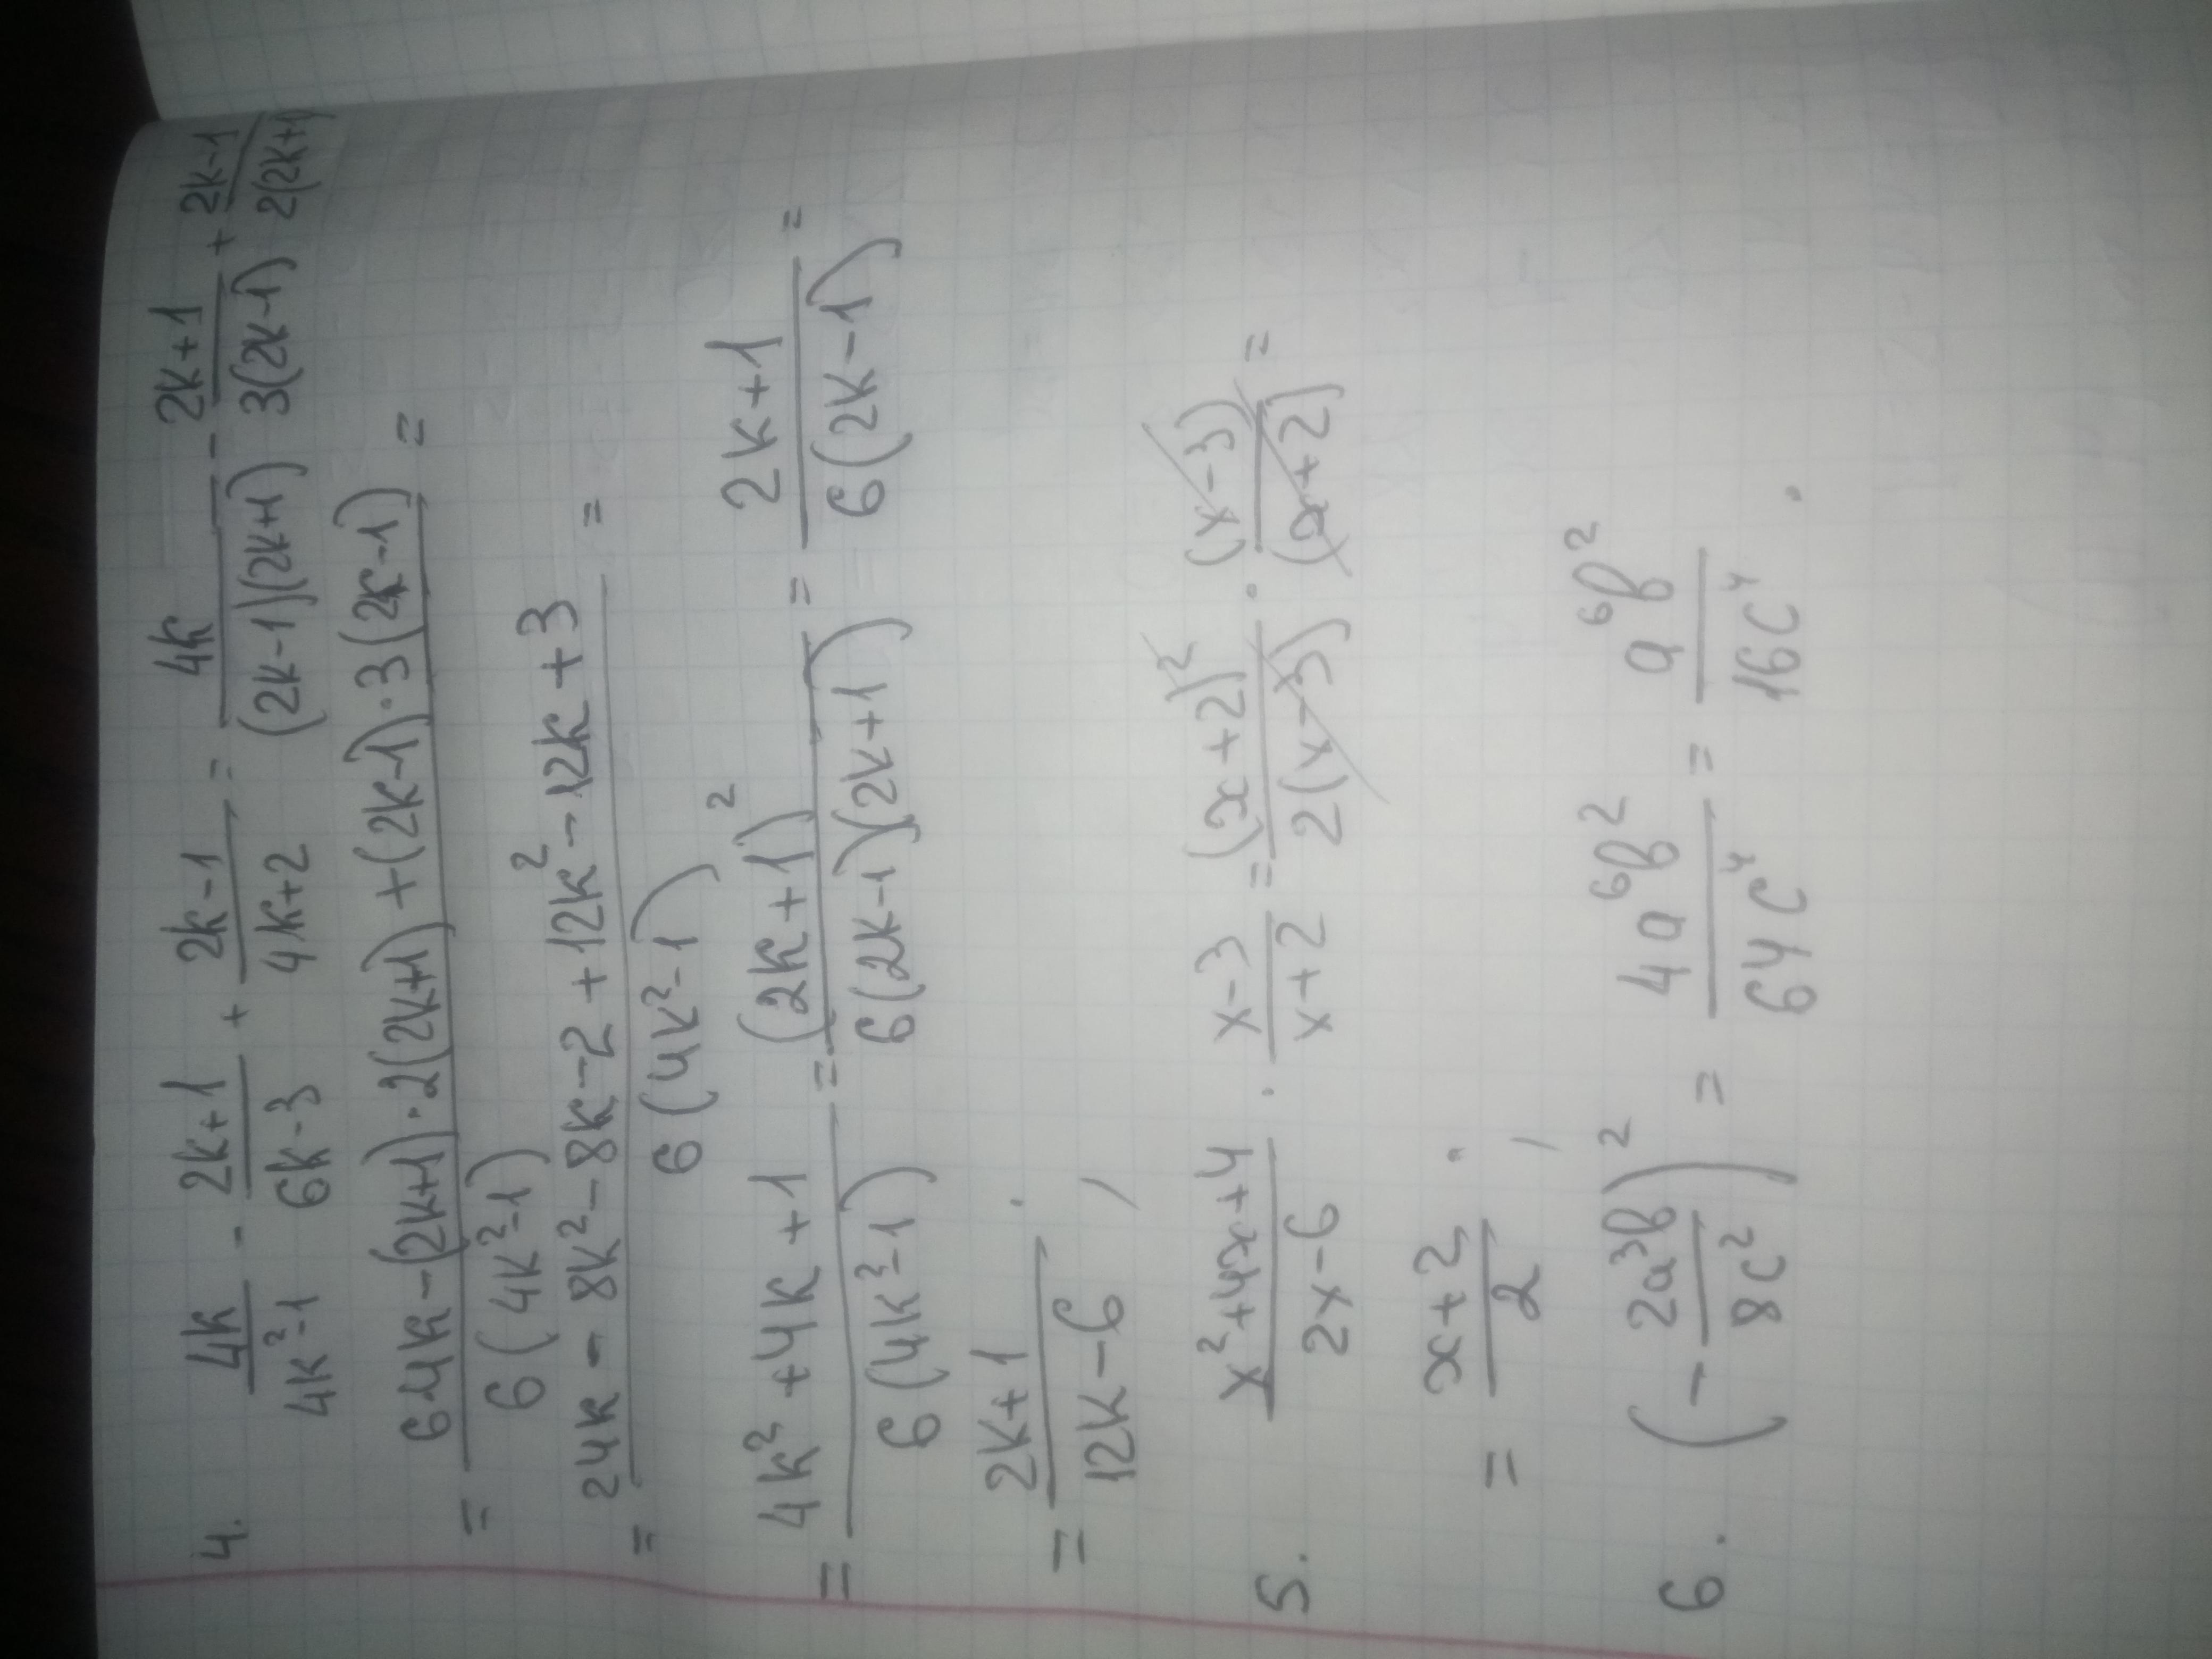 4. 4k/(4k²-1) - (2k+1)/(6k-3) + (2k-1)/(4k+2) = 4k/((2k-1)(2k+1)) - (2k+1)/(3(2k-1)) + (2k-1)/(2(2k+1))
= (6·4k-(2k+1)·2(2k+1)+(2k-1)·3(2k-1))/(6(4k²-1)) =
= (24k-8k²-8k-2+12k²-12k+3)/(6(4k²-1)) =
= (4k²+4k+1)/(6(4k²-1)) = (2k+1)²/(6(2k-1)(2k+1)) = (2k+1)/(6(2k-1)) =
= (2k+1)/(12k-6);
5. (x²+4x+4)/(2x-6) · (x-3)/(x+2) = (x+2)²/(2(x-3)) · (x-3)/(x+2) =
= (x+2)/2;
6. (-2a³b/8c²)² = 4a⁶b²/64c⁴ = a⁶b²/16c⁴.